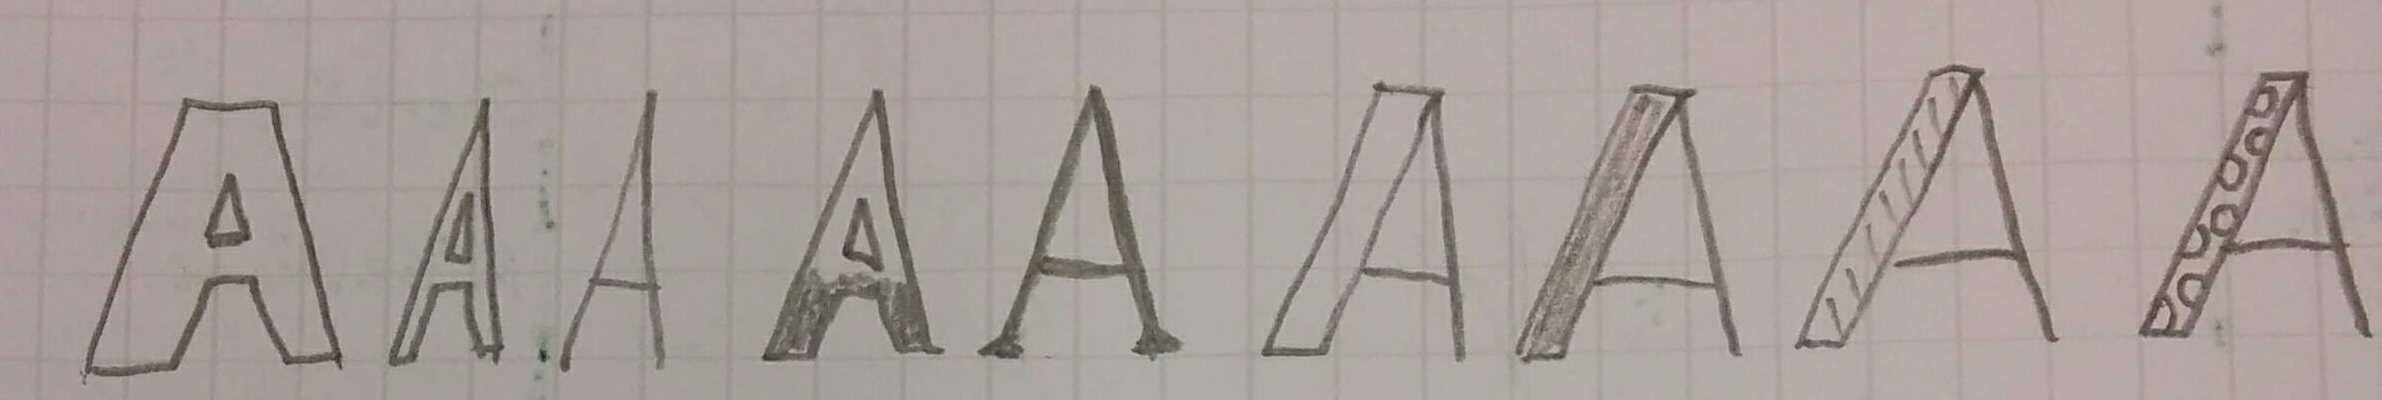 A A A A A A A A A